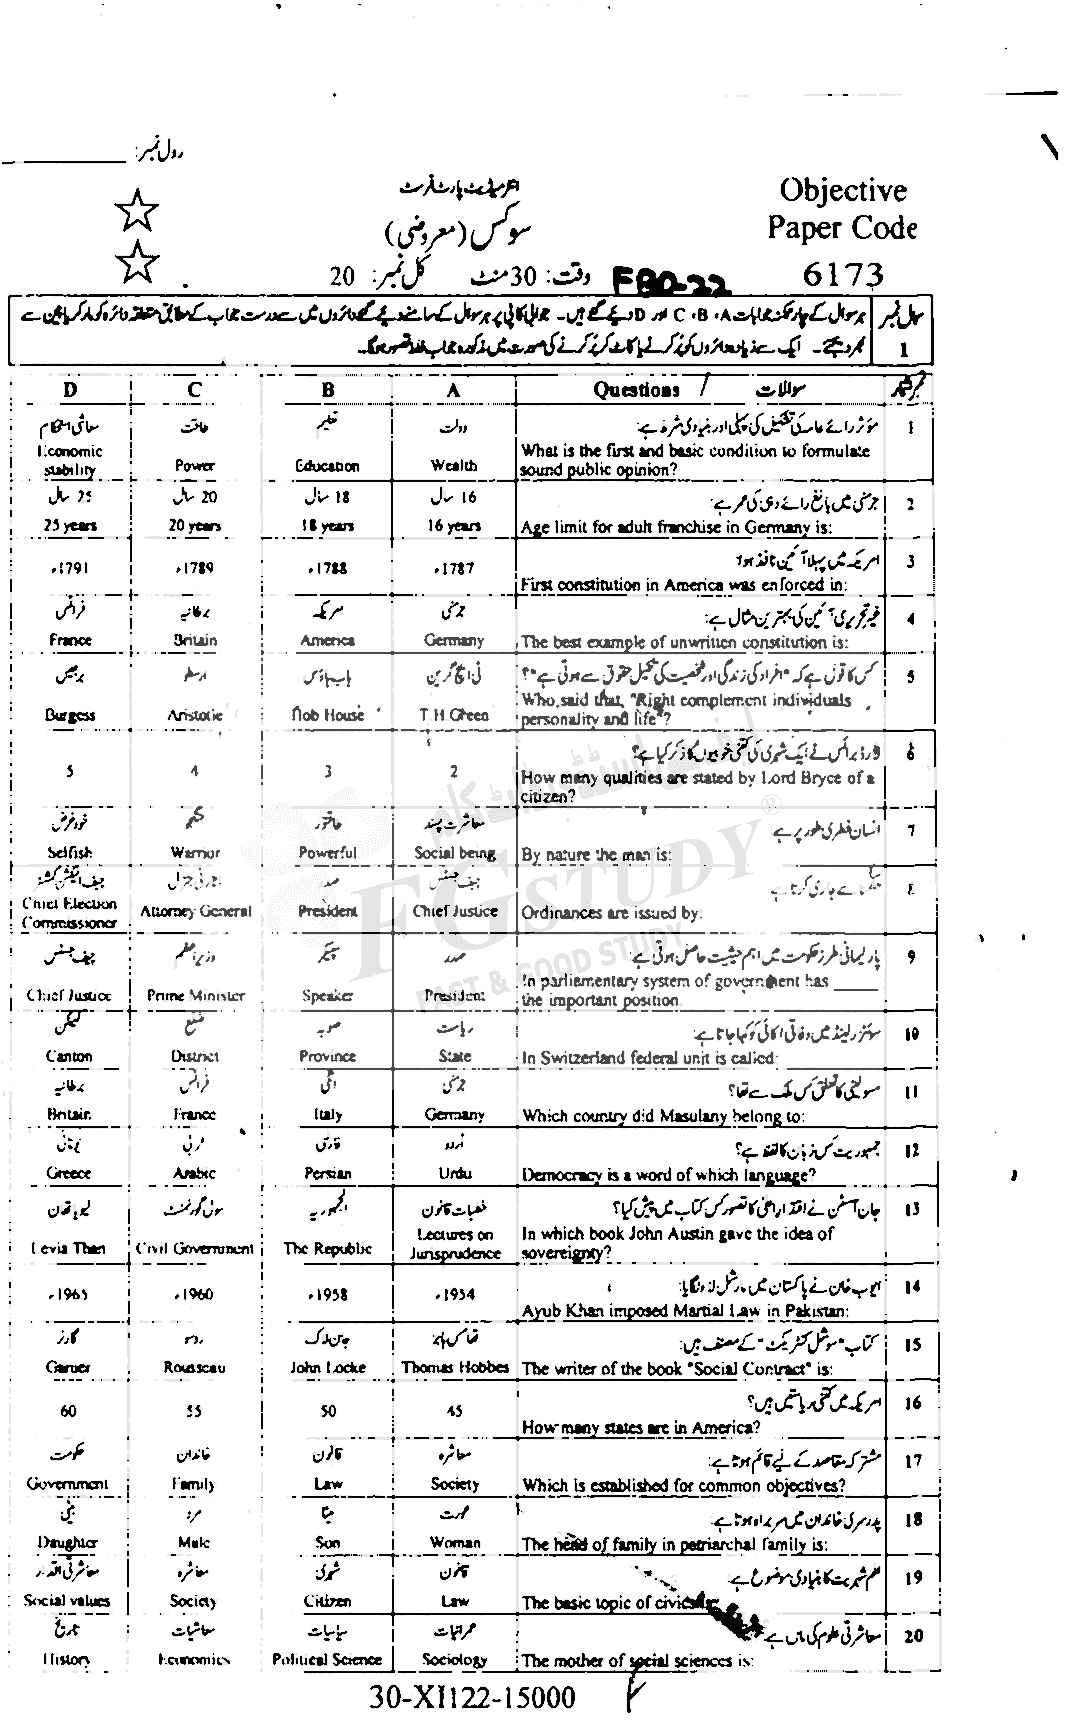 رول نمبر: ____________
Objective
Paper Code
6173
انٹرمیڈیٹ پارٹ فرسٹ
سوکس (معروضی)
وقت: 30 منٹ کل نمبر: 20
FBD-22
سوال نمبر 1
ہر سوال کے چار ممکنہ جوابات A، B، C اور D دیئے گئے ہیں۔ جوابی کاپی پر ہر سوال کے سامنے دیئے گئے دائروں میں سے درست جواب کے مطابق متعلقہ دائرہ کو مارکر یا پین سے
بھر دیجئے۔ ایک سے زیادہ دائروں کو پُر کرنے یا کاٹ کر پُر کرنے کی صورت میں مذکورہ جواب غلط تصور ہوگا۔
D C B A Questions / سوالات نمبر شمار
1 مؤثر رائے عامہ کی تشکیل کی پہلی اور بنیادی شرط ہے:
What is the first and basic condition to formulate
sound public opinion?
دولت تعلیم طاقت معاشی استحکام
Economic stability Power Education Wealth
2 جرمنی میں بالغ رائے دہی کی عمر ہے:
Age limit for adult franchise in Germany is:
16 سال 18 سال 20 سال 25 سال
25 years 20 years 18 years 16 years
3 امریکہ میں پہلا آئین نافذ ہوا:
First constitution in America was enforced in:
1791ء 1789ء 1788ء 1787ء
4 غیر تحریری آئین کی بہترین مثال ہے:
The best example of unwritten constitution is:
جرمنی امریکہ برطانیہ فرانس
France Britain America Germany
5 کس کا قول ہے کہ "افراد کی زندگی اور شخصیت کی تکمیل حقوق سے ہوتی ہے"؟
Who, said that, "Right complement individuals
personality and life"?
ٹی ایچ گرین ہاب ہاؤس ارسطو برجیس
Burgess Aristotle Hob House T.H Green
6 لارڈ برائس نے ایک شہری کی کتنی خوبیوں کا ذکر کیا ہے؟
How many qualities are stated by Lord Bryce of a
citizen?
5 4 3 2
7 انسان فطری طور پر ہے:
By nature the man is:
معاشرت پسند طاقتور جنگجو خود غرض
Selfish Warrior Powerful Social being
8 جاری کرتا ہے:
Ordinances are issued by:
چیف جسٹس صدر اٹارنی جنرل چیف الیکشن کمشنر
Chief Election Commissioner Attorney General President Chief Justice
9 پارلیمانی طرز حکومت میں اہم حیثیت حاصل ہوتی ہے:
In parliamentary system of government has _____
the important position.
صدر سپیکر وزیراعظم چیف جسٹس
Chief Justice Prime Minister Speaker President
10 سوئٹزرلینڈ میں وفاقی اکائی کو کہا جاتا ہے:
In Switzerland federal unit is called:
ریاست صوبہ ضلع کینٹن
Canton District Province State
11 مسولینی کا تعلق کس ملک سے تھا؟
Which country did Masulany belong to:
جرمنی اٹلی فرانس برطانیہ
Britain France Italy Germany
12 جمہوریت کس زبان کا لفظ ہے؟
Democracy is a word of which language?
اردو فارسی عربی یونانی
Greece Arabic Persian Urdu
13 جان آسٹن نے اقتدار اعلیٰ کا تصور کس کتاب میں پیش کیا؟
In which book John Austin gave the idea of
sovereignty?
خطبات قانون الجمہوریہ سول گورنمنٹ لیویاتھن
Levia Than Civil Government The Republic Lectures on Jurisprudence
14 ایوب خان نے پاکستان میں مارشل لاء لگایا:
Ayub Khan imposed Martial Law in Pakistan:
1965ء 1960ء 1958ء 1954ء
15 کتاب "سوشل کنٹریکٹ" کے مصنف ہیں:
The writer of the book "Social Contract" is:
تھامس ہابز جان لاک روسو گارنر
Garner Rousseau John Locke Thomas Hobbes
16 امریکہ میں کتنی ریاستیں ہیں؟
How many states are in America?
60 55 50 45
17 مشترکہ مقاصد کے لیے قائم ہوتا ہے:
Which is established for common objectives?
معاشرہ قانون خاندان حکومت
Government Family Law Society
18 پدرسری خاندان میں سربراہ ہوتا ہے:
The head of family in patriarchal family is:
عورت بیٹا مرد بیٹی
Daughter Male Son Woman
19 علم شہریت کا بنیادی موضوع ہے:
The basic topic of civics
قانون شہری معاشرہ معاشرتی اقدار
Social values Society Citizen Law
20 معاشرتی علوم کی ماں ہے:
The mother of social sciences is:
عمرانیات سیاسیات معاشیات تاریخ
History Economics Political Science Sociology
30-XI122-15000
FG STUDY ®
FAST & GOOD STUDY